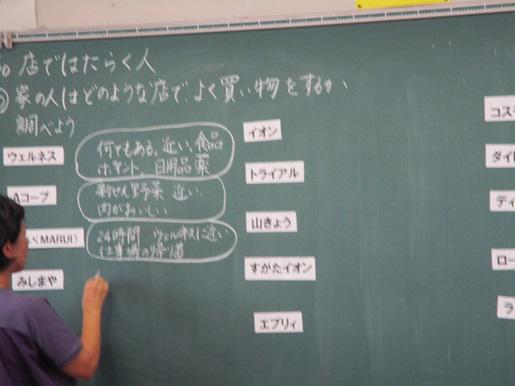 店ではたらく人
家の人はどのような店で、よく買い物をするか
調べよう
ウェルネス
Aコープ
い(MARUI)
みしまや
何でもある、近い、食品
ポイント、日用品 薬
新せん野菜 近い
肉がおいしい
24時間 ウェルネスに近い
仕事場の帰り道
イオン
トライアル
山きょう
すがたイオン
エブリィ
コス
ダイ
ディ
ロー
ラ